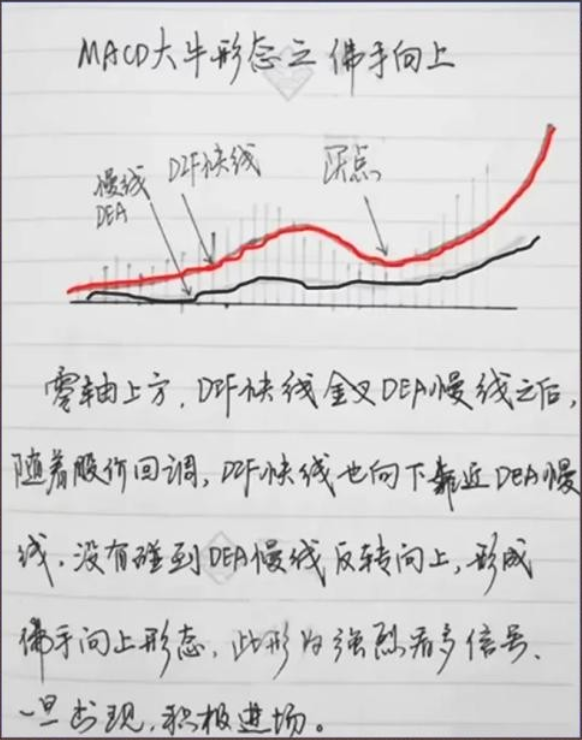 MACD大牛形态之佛手向上
慢线
DEA
DIF快线
买点
零轴上方,DIF快线金叉DEA慢线之后,
随着股价回调,DIF快线也向下靠近DEA慢
线,没有碰到DEA慢线反转向上,形成
佛手向上形态,此形为强烈看多信号、
一旦出现,积极进场。